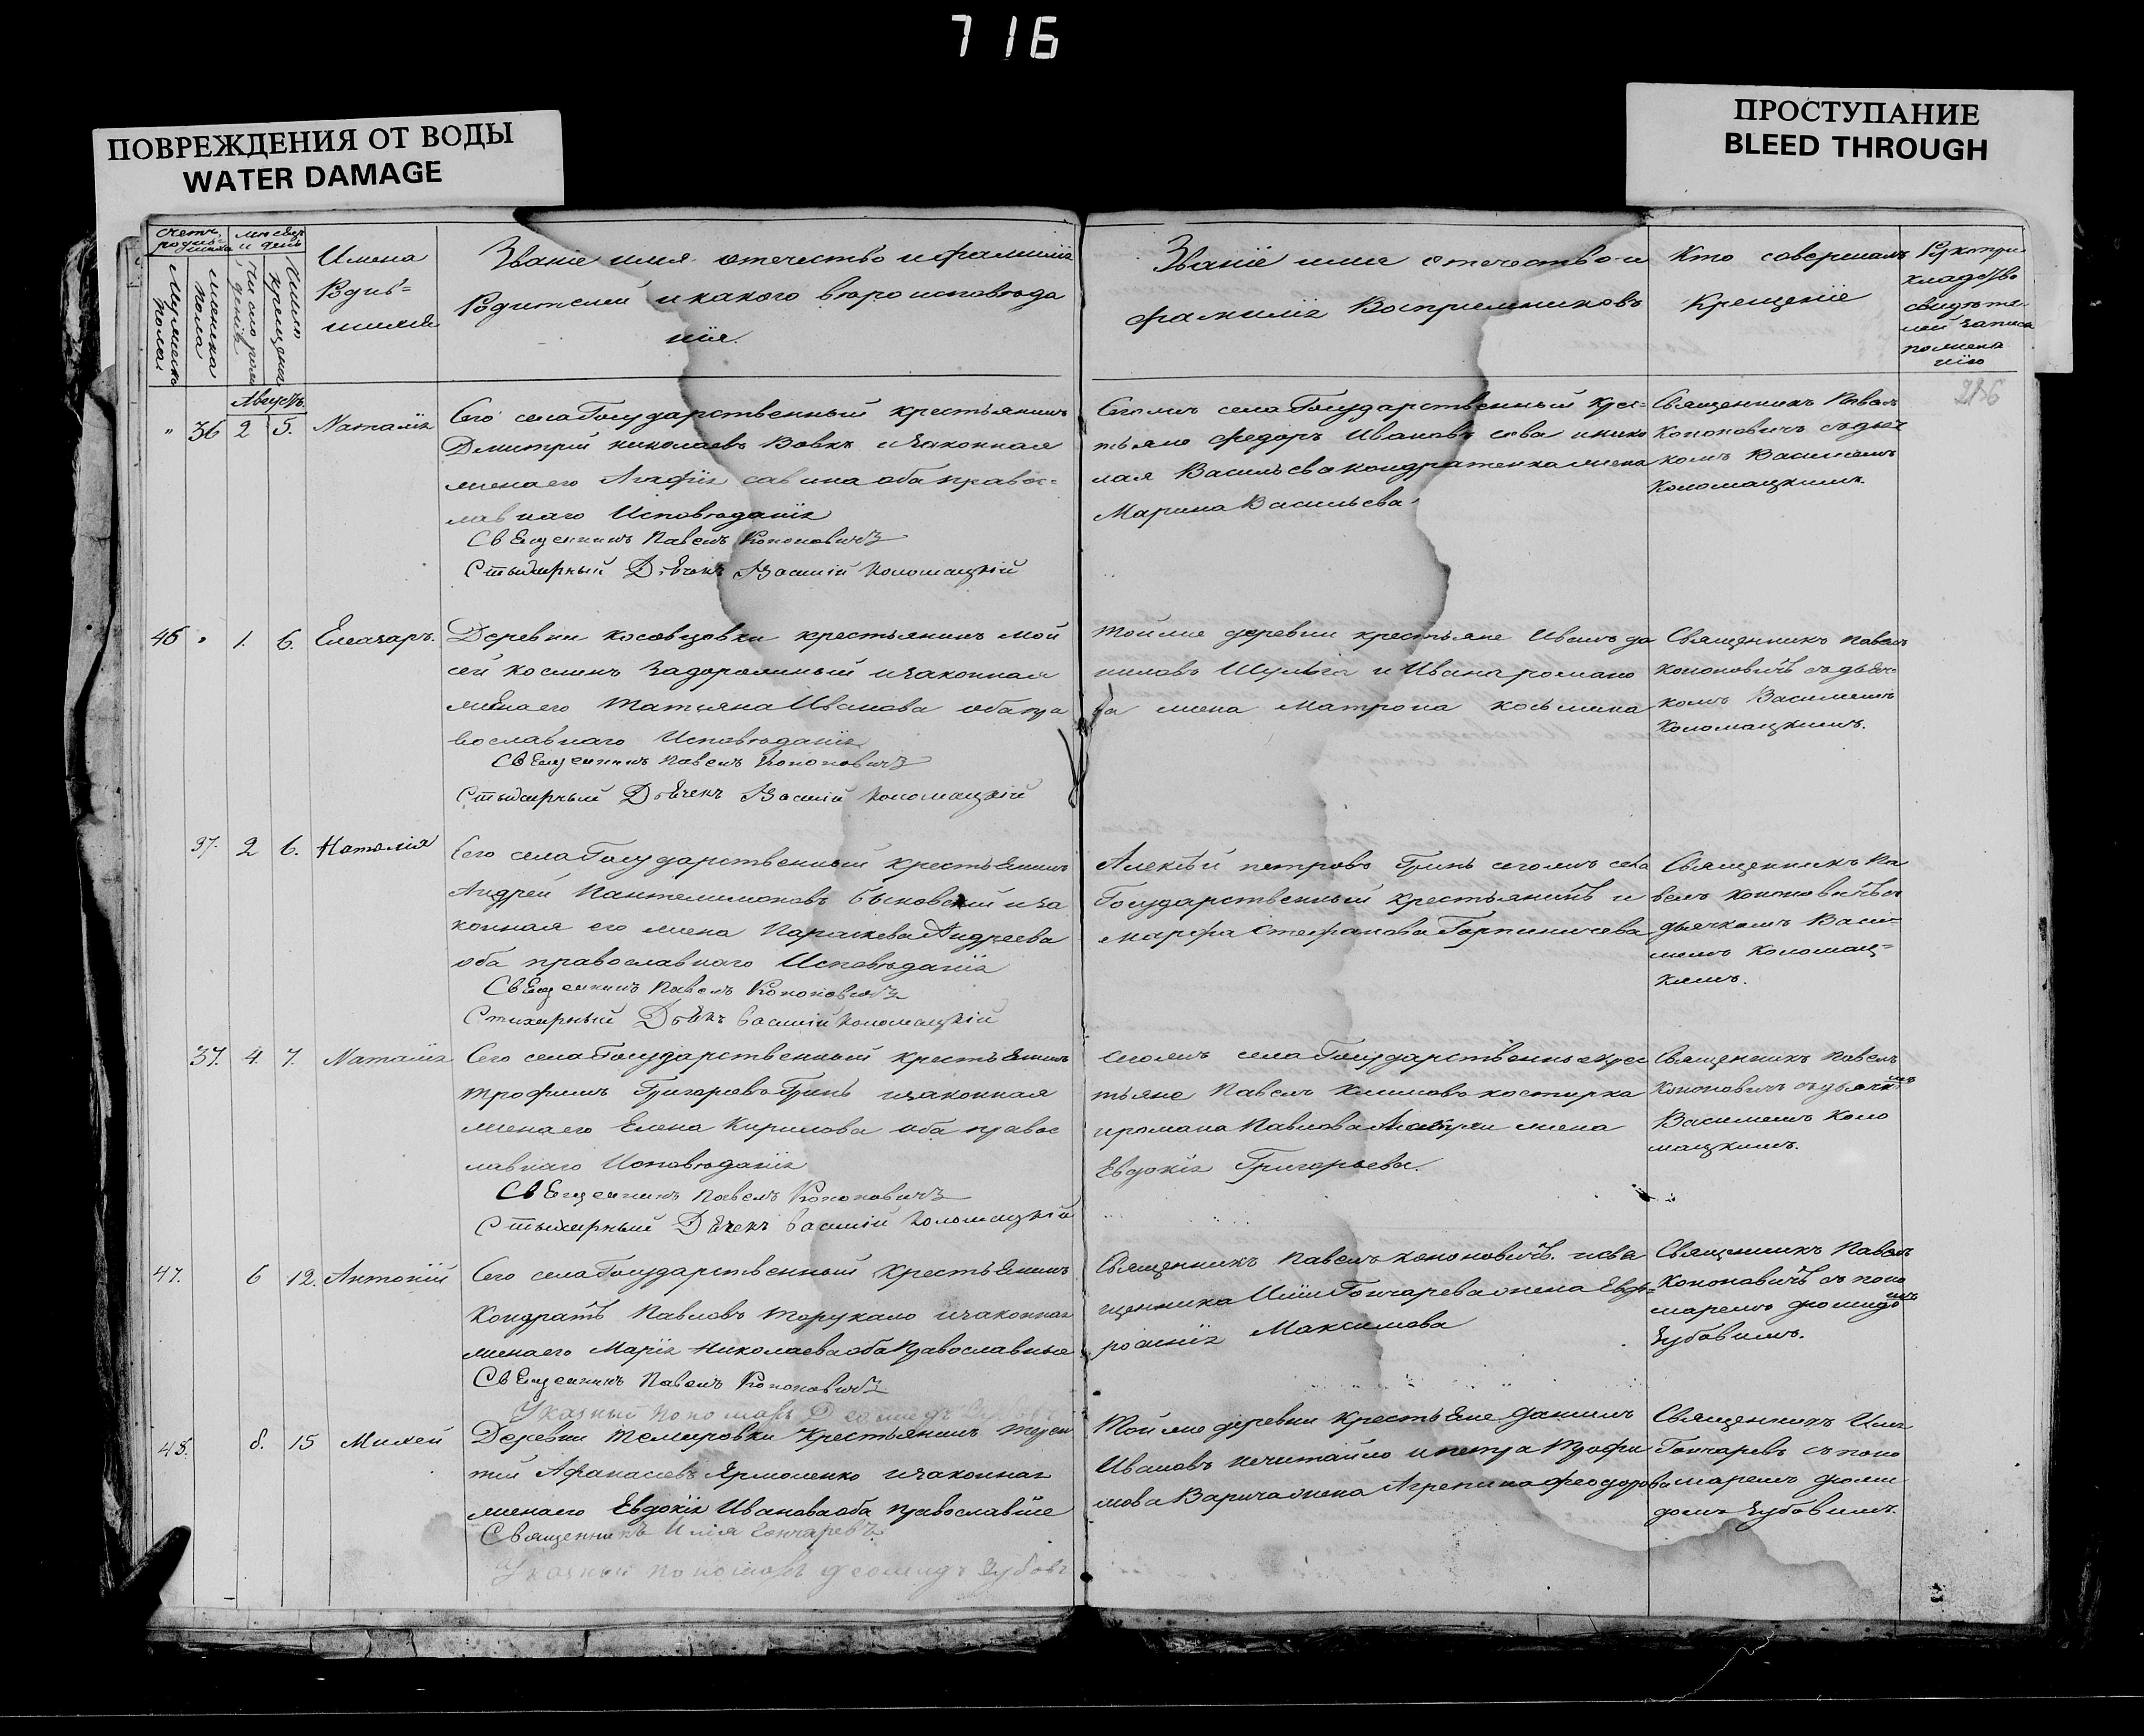 716
ПОВРЕЖДЕНИЯ ОТ ВОДЫ
WATER DAMAGE
ПРОСТУПАНИЕ
BLEED THROUGH
Имена
Званіе имя отечество и фамилія
Родителей и какого вѣроисповѣда
нія.
Званіе имя отечество и
фамилія Восприемниковъ
Кто совершалъ
Крещеніе
Августъ.
236
" 36 2 5. Наталія
Сего села Государственный крестьянинъ
Дмитрій николаевъ Вовкъ и законная
жена его Агафія савина оба правос=
лавнаго Исповѣданія
Священникъ Павелъ Кононовичъ
Стихарный Дьячекъ Василій Коломацкій
Сегожъ села Государственный крес=
тьяне федоръ Ивановъ
Васильева кондратенка жена
Марина Васильева
Священникъ Павелъ
Кононовичъ съ дья
комъ Василіемъ
Коломацкимъ.
46 " 1. 6. Елеазаръ.
Деревни косовцовки крестьянинъ мой
сей косминъ Задорожный и законная
жена его Татьяна Иванова оба пра
вославнаго Исповѣданія
Священникъ Павелъ Кононовичъ
Стихарный Дьячекъ Василій Коломацкій
Тойже деревни крестьяне Иванъ да
ниловъ Шульга и Ивана романо
ва жена Матрона косьмина
Священникъ Павелъ
Кононовичъ съ дьяч=
комъ Василіемъ
Коломацкимъ.
37. 2 6. Наталія
Сего села Государственный крестьянинъ
Андрей Пантелимоновъ Быковский и за
конная его жена Параскева Андреева
оба православнаго Исповѣданія
Священникъ Павелъ Кононовичъ
Стихарный Дьячекъ Василій Коломацкій
Алексѣй петровъ Гринь сегожъ села
Государственный крестьянинъ и
марфа Стефанова
Священникъ Па
велъ Кононовичъ съ
дьячкомъ Васи=
лиемъ Коломац=
кимъ.
37. 4. 7. Наталія
Сего села Государственный крестьянинъ
трофимъ Григорьевъ Гринь и законная
жена его Елена Кирилова оба правос
лавнаго Исповѣданія
Священникъ Павелъ Кононовичъ
Стихарный Дьячекъ Василій Коломацкій
Сегожъ села Государственные крес
тьяне Павелъ Климовъ костирка
и романа Павлова жена
Евдокія Григорьева.
Священникъ Павелъ
Кононовичъ съ дьячкомъ
Василіемъ Коло
мацкимъ.
47. 6 12. Антоній
Сего села Государственный Крестьянинъ
Кондратъ Павловъ Торукало и законная
жена его Марія Николаева оба Православные
Священникъ Павелъ Кононовичъ
Указный пономарь
Священникъ Павелъ кононовичъ. и свя
щенника Иліи Гончарева жена Евф=
росинія Максимова
Священникъ Павелъ
Кононовичъ съ поно
маремъ
Зубовимъ.
48. 8. 15 Михей
Деревни Темировки Крестьянинъ терен
тій Афанасіевъ Ярмоленко и законная
жена его Евдокія Иванова оба православніе
Священникъ Илія Гончаревъ
Указный пономарь феомидъ Зубовъ
Тойже деревни крестьяне Даниилъ
Ивановъ нечитайло и петра Трофи
мова Варича жена Агрепина Феодорова
Священникъ Илія
Гончаревъ съ поно
маремъ фоми
домъ Зубовимъ.